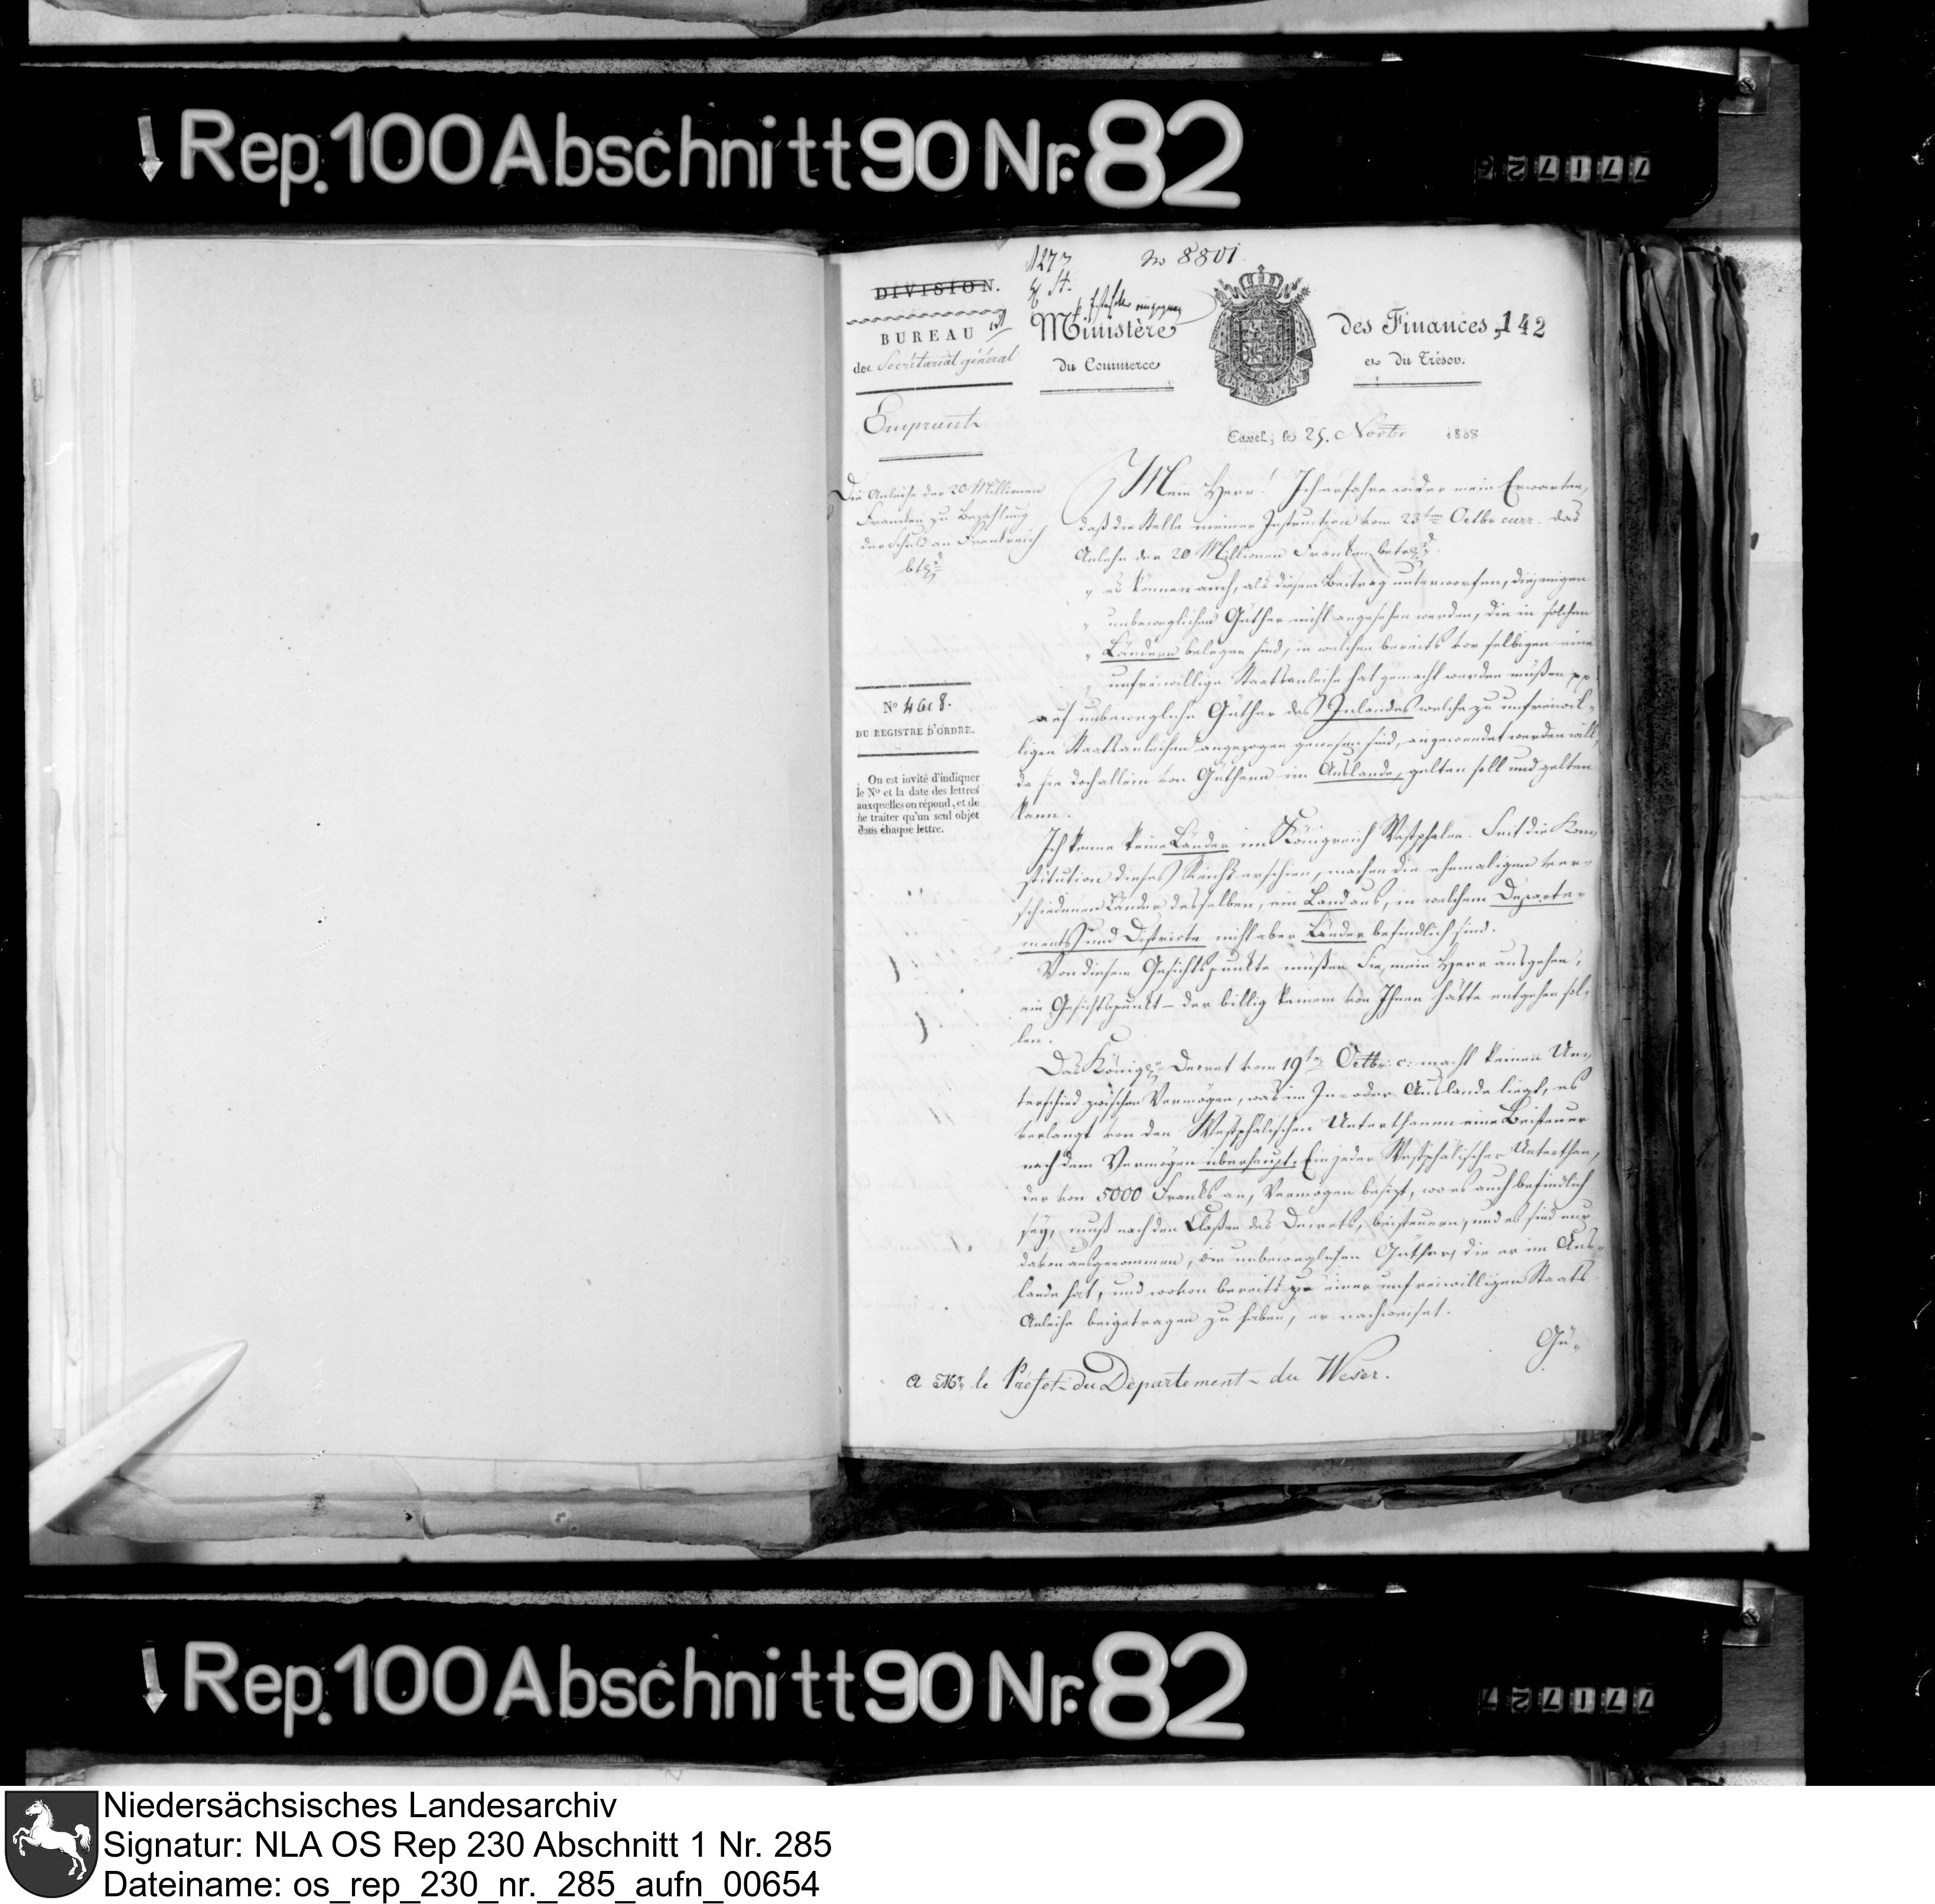 Rep. 100 Abschnitt 90 Nr. 82
1273
No 8801
DIVISION.
BUREAU
des Secrétariat général
Ministère
des Finances,
142
du Commerce
et du Trésor.
Emprunt
Cassel, le 25. Novbr 1808
Die Anleihe der 20 Millionen
Franken zu Bezahlung
der Schuld an Frankreich
No 4618.
DU REGISTRE D'ORDRE.
On est invité d'indiquer
le No et la date des lettres
auxquelles on répond, et de
ne traiter qu'un seul objet
dans chaque lettre.
Mein Herr! Ich erfahre wider mein Erwarten,
daß die Stelle meiner Instruction vom 23ten Octbr curr. das
Anlehn der 20 Millionen Franken
„ es können auch, als diesem Beitrag unterworfen, diejenigen
„ unbeweglichen Güther nicht angesehen werden, die in solchen
„ Ländern belegen sind, in welchen bereits vor selbigen eine
„ unfreiwillige Staatsanleihe hat gemacht werden müßen pp
auf unbewegliche Güther des Inlandes welche zu unfreiwil-
ligen Staatsanleihen angezogen gewesen sind, angewendet werden will,
da sie doch allein von Güthern im Auslande, gelten soll und gelten
kann.
Ich kenne keine Länder im Königreich Westphalen. Seit die Kon-
stitution dieses Reichs erschien, machen die ehemaligen ver-
schiedenen Länder desselben, ein Land aus, in welchem Departe-
ments und Districte nicht aber Länder befindlich sind.
Von diesem Gesichtspunkte müßen Sie, mein Herr ausgehen,
ein Gesichtspunkt – der billig keinem von Ihnen hätte entgehen sol-
len.
Das Königl. Decret vom 19ten Octbr. c: macht keinen Un-
terschied zwischen Vermögen, was im In- oder Auslande liegt, es
verlangt von den Westphälischen Unterthanen eine Beisteuer
nach dem Vermögen überhaupt. Ein jeder Westphälischer Unterthan,
der von 5000 Franks an, Vermögen besizt, wo es auch befindlich
sey, muß nach den Claßen des Decrets, beisteuern, und es sind nur
davon ausgenommen, die unbeweglichen Güther, die er im Aus-
lande hat, und wovon bereits zu einer unfreiwilligen Staats
Anleihe beigetragen zu haben, er nachweiset.
Gü-
A Mr. le Préfet du Département du Weser.
Rep. 100 Abschnitt 90 Nr. 82
Niedersächsisches Landesarchiv
Signatur: NLA OS Rep 230 Abschnitt 1 Nr. 285
Dateiname: os_rep_230_nr._285_aufn_00654